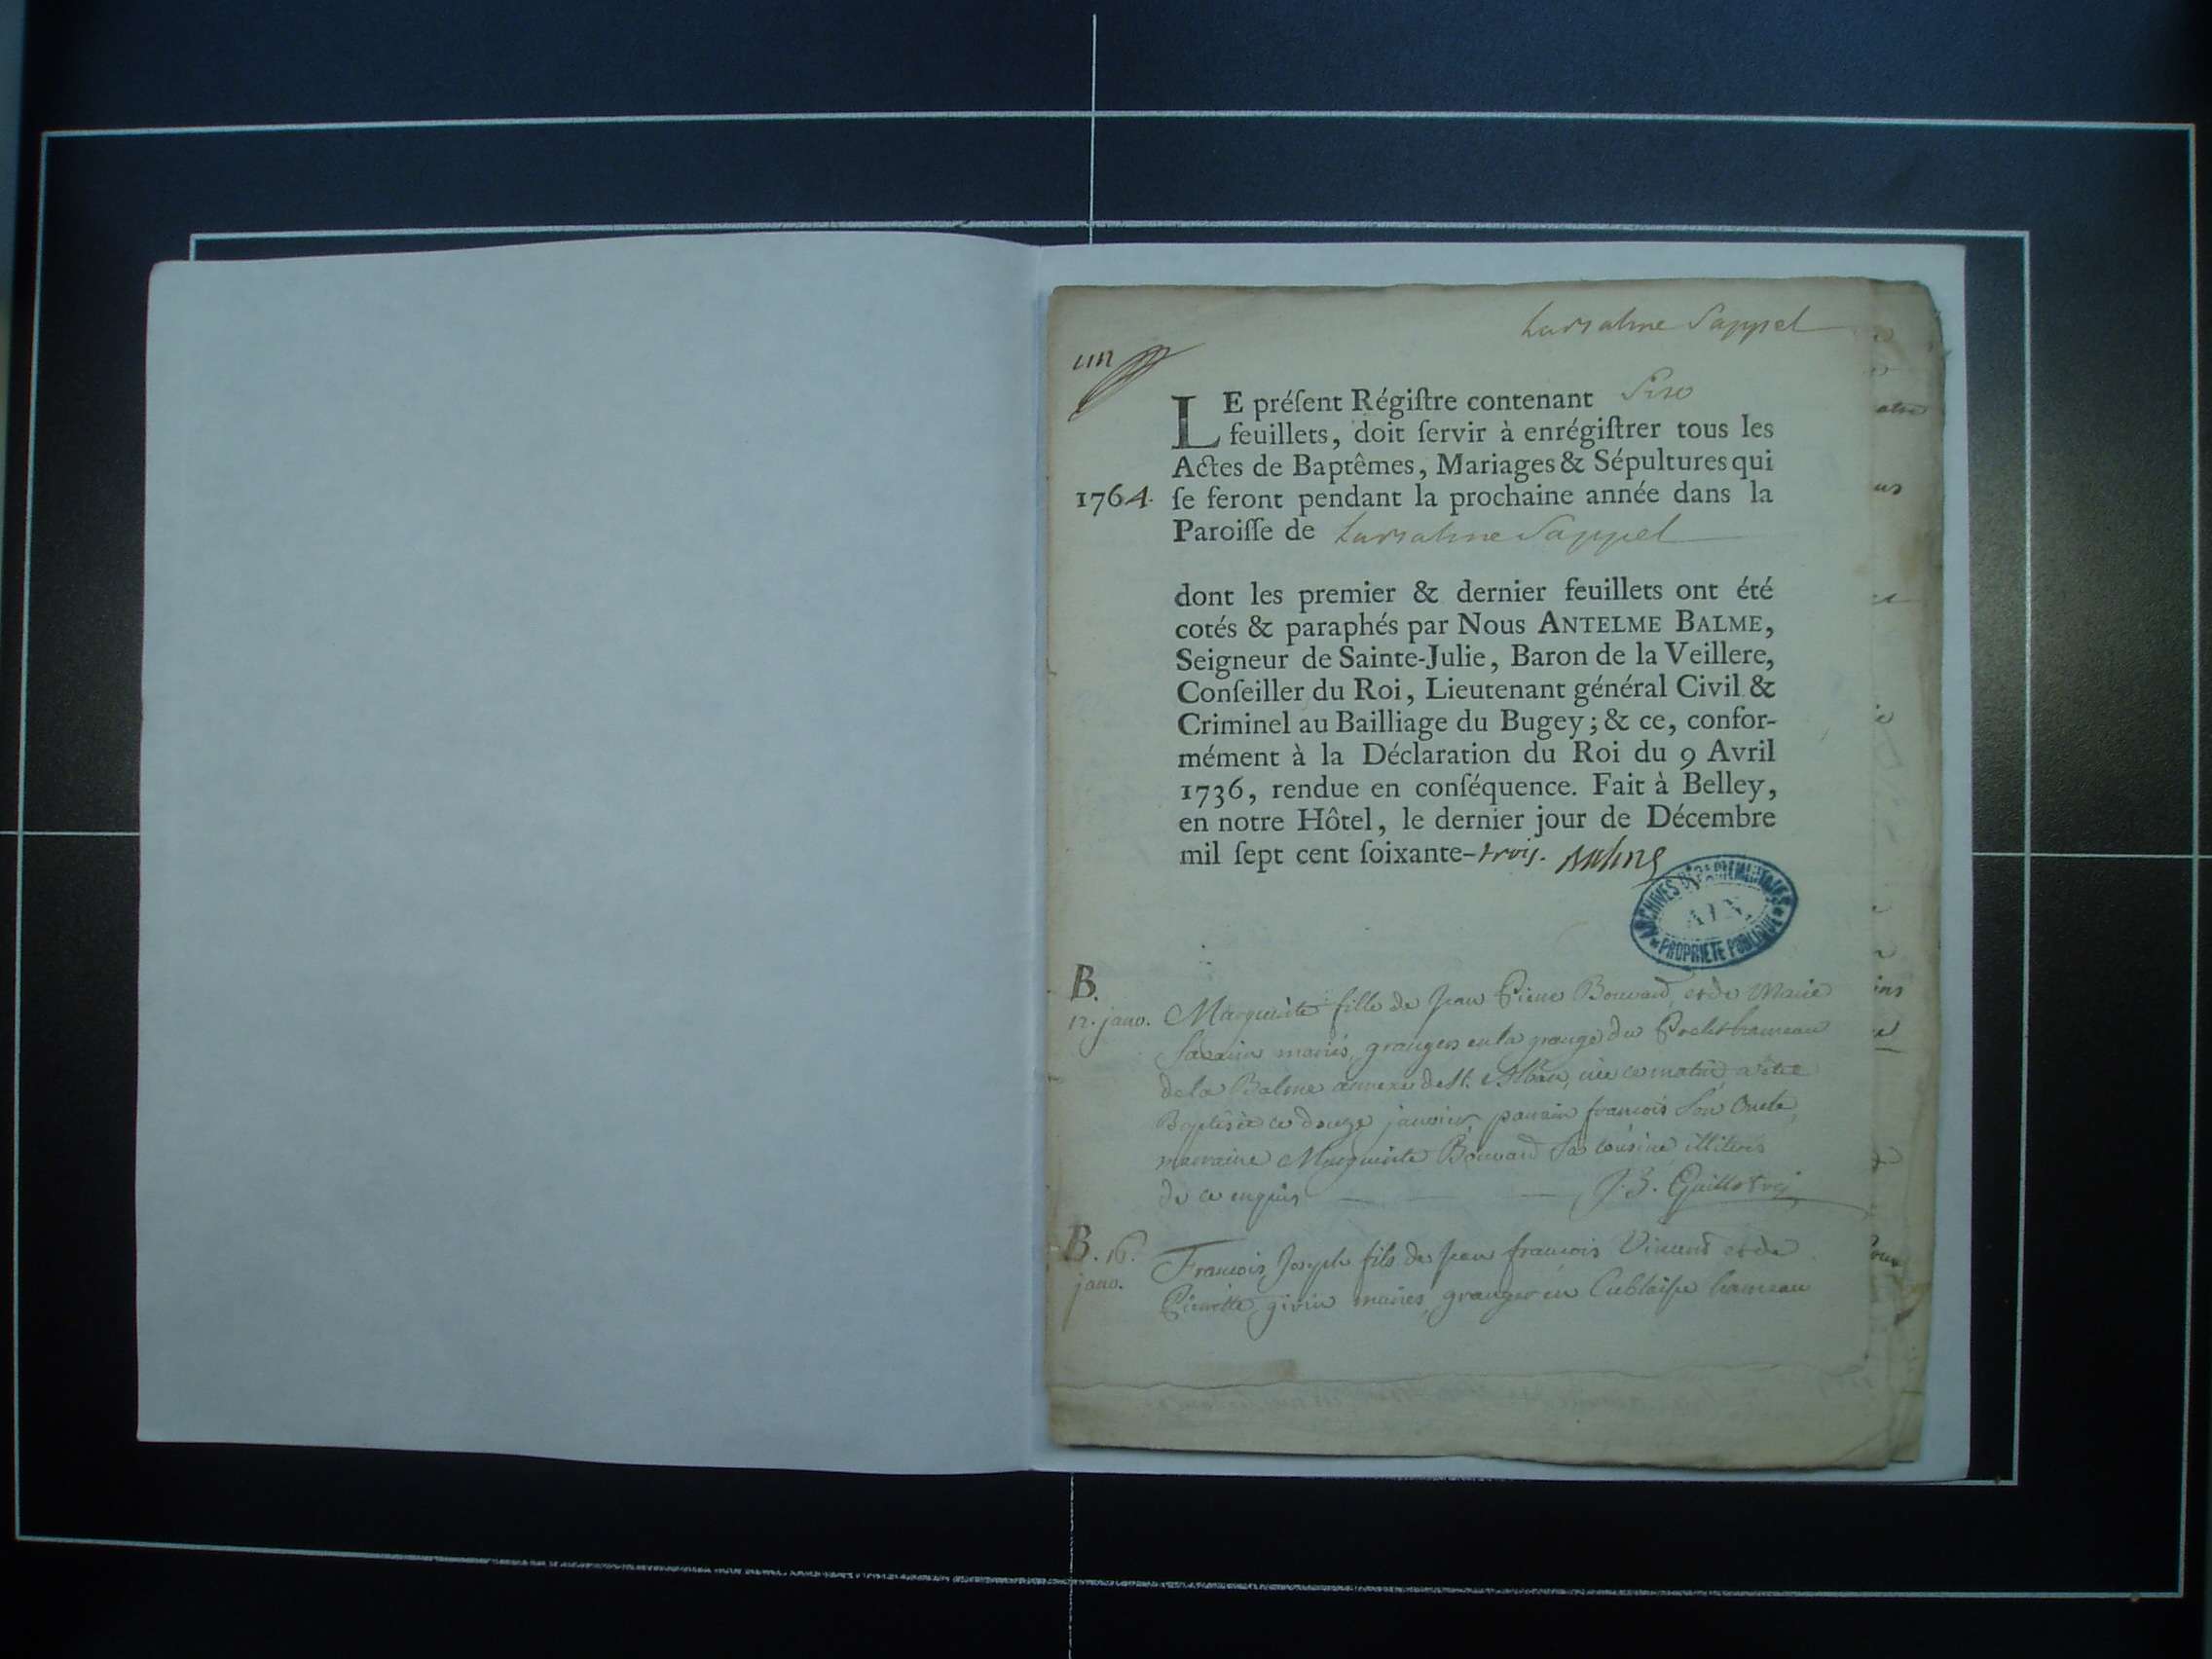 Labalme Sappel
un
LE préſent Régiſtre contenant Six
feuillets, doit ſervir à enrégiſtrer tous les
Actes de Baptêmes, Mariages & Sépultures qui
1764. ſe feront pendant la prochaine année dans la
Paroiſſe de Labalme Sappel
dont les premier & dernier feuillets ont été
cotés & paraphés par Nous ANTELME BALME,
Seigneur de Sainte-Julie, Baron de la Veillere,
Conſeiller du Roi, Lieutenant général Civil &
Criminel au Bailliage du Bugey; & ce, confor-
mément à la Déclaration du Roi du 9 Avril
1736, rendue en conſéquence. Fait à Belley,
en notre Hôtel, le dernier jour de Décembre
mil ſept cent ſoixante-trois. Balme
ARCHIVES DÉPARTEMENTALES
AIN
PROPRIÉTÉ PUBLIQUE
B.
12. janv. Marguerite fille de Jean Pierre Bouvard, et de Marie
mariés, grangers en la grange du hameau
de la Balme annexe de St. Alban, née ce matin, a été
Baptisée ce douze janvier, parrain francois son Oncle,
marraine Marguerite Bouvard sa cousine illiterés
de ce enquis J. B.
B. 16.
janv. Francois Joseph fils de Jean francois Vincent et de
Pierrette mariés, granger en Cublaise hameau